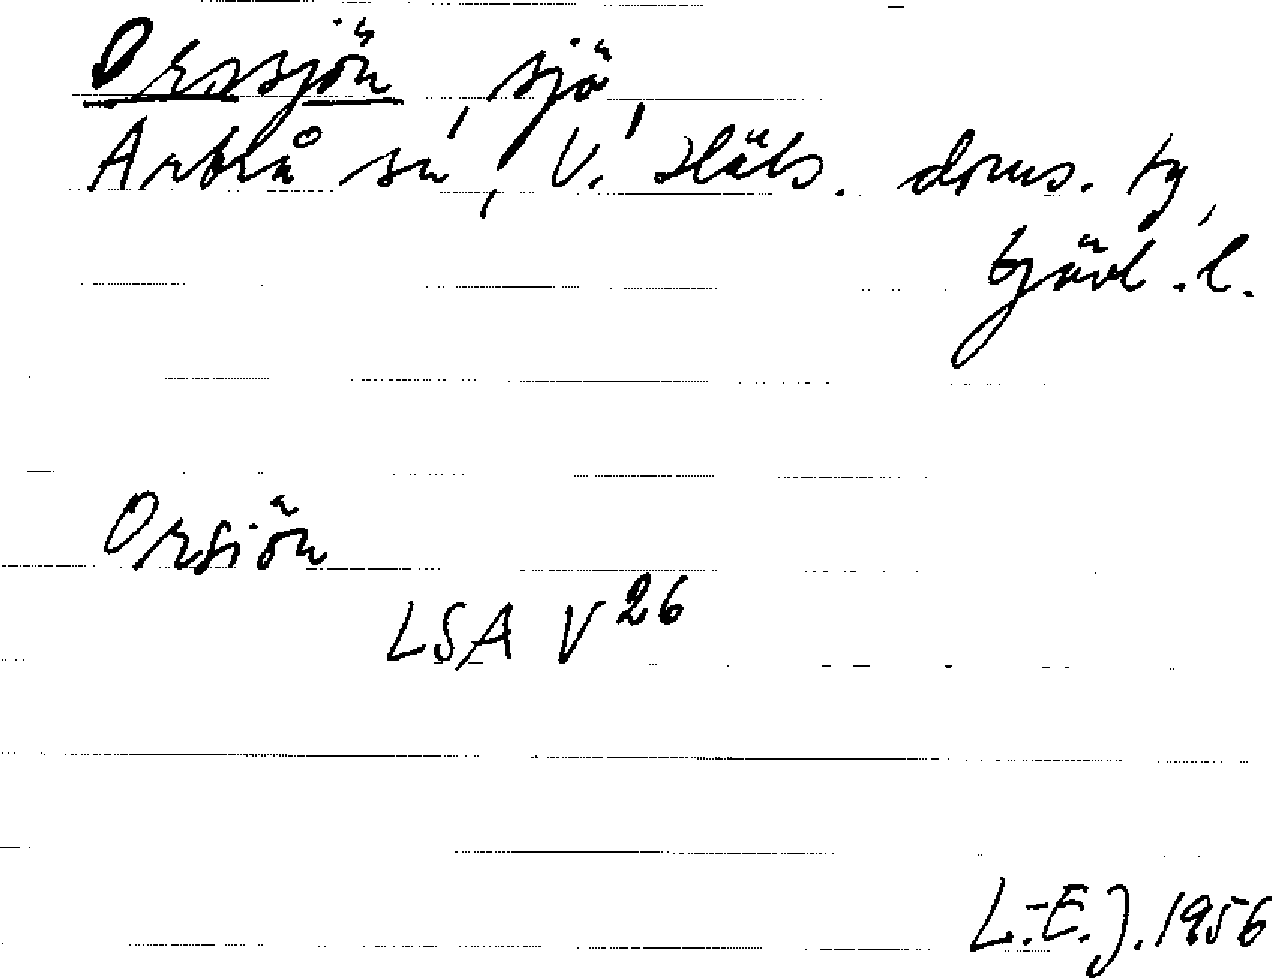 Orssjön, sjö,
Arbrå sn, V. Häls. doms. tg,
Gävl. l.
Orsiön
LSA V 26
L.-E. J. 1956